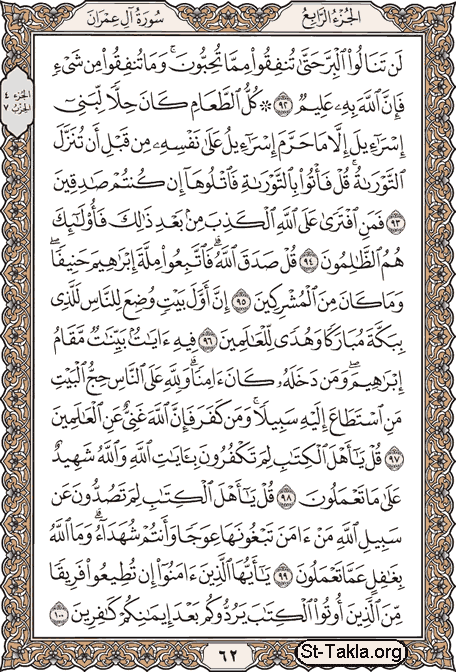 الجزء الرابع
سورة آل عمران
لَن تَنَالُوا۟ ٱلْبِرَّ حَتَّىٰ تُنفِقُوا۟ مِمَّا تُحِبُّونَ ۚ وَمَا تُنفِقُوا۟ مِن شَىْءٍ
فَإِنَّ ٱللَّهَ بِهِۦ عَلِيمٌ ٩٢ ۞ كُلُّ ٱلطَّعَامِ كَانَ حِلًّا لِّبَنِىٓ
إِسْرَٰٓءِيلَ إِلَّا مَا حَرَّمَ إِسْرَٰٓءِيلُ عَلَىٰ نَفْسِهِۦ مِن قَبْلِ أَن تُنَزَّلَ
ٱلتَّوْرَىٰةُ ۗ قُلْ فَأْتُوا۟ بِٱلتَّوْرَىٰةِ فَٱتْلُوهَآ إِن كُنتُمْ صَٰدِقِينَ
٩٣ فَمَنِ ٱفْتَرَىٰ عَلَى ٱللَّهِ ٱلْكَذِبَ مِنۢ بَعْدِ ذَٰلِكَ فَأُو۟لَٰٓئِكَ
هُمُ ٱلظَّٰلِمُونَ ٩٤ قُلْ صَدَقَ ٱللَّهُ ۗ فَٱتَّبِعُوا۟ مِلَّةَ إِبْرَٰهِيمَ حَنِيفًا ۖ
وَمَا كَانَ مِنَ ٱلْمُشْرِكِينَ ٩٥ إِنَّ أَوَّلَ بَيْتٍ وُضِعَ لِلنَّاسِ لَلَّذِى
بِبَكَّةَ مُبَارَكًا وَهُدًى لِّلْعَٰلَمِينَ ٩٦ فِيهِ ءَايَٰتٌۢ بَيِّنَٰتٌ مَّقَامُ
إِبْرَٰهِيمَ ۖ وَمَن دَخَلَهُۥ كَانَ ءَامِنًا ۗ وَلِلَّهِ عَلَى ٱلنَّاسِ حِجُّ ٱلْبَيْتِ
مَنِ ٱسْتَطَاعَ إِلَيْهِ سَبِيلًا ۚ وَمَن كَفَرَ فَإِنَّ ٱللَّهَ غَنِىٌّ عَنِ ٱلْعَٰلَمِينَ
٩٧ قُلْ يَٰٓأَهْلَ ٱلْكِتَٰبِ لِمَ تَكْفُرُونَ بِـَٔايَٰتِ ٱللَّهِ وَٱللَّهُ شَهِيدٌ
عَلَىٰ مَا تَعْمَلُونَ ٩٨ قُلْ يَٰٓأَهْلَ ٱلْكِتَٰبِ لِمَ تَصُدُّونَ عَن
سَبِيلِ ٱللَّهِ مَنْ ءَامَنَ تَبْغُونَهَا عِوَجًا وَأَنتُمْ شُهَدَآءُ ۗ وَمَا ٱللَّهُ
بِغَٰفِلٍ عَمَّا تَعْمَلُونَ ٩٩ يَٰٓأَيُّهَا ٱلَّذِينَ ءَامَنُوٓا۟ إِن تُطِيعُوا۟ فَرِيقًا
مِّنَ ٱلَّذِينَ أُوتُوا۟ ٱلْكِتَٰبَ يَرُدُّوكُم بَعْدَ إِيمَٰنِكُمْ كَٰفِرِينَ ١٠٠
الجزء ٤
الحزب ٧
٦٢
St-Takla.org